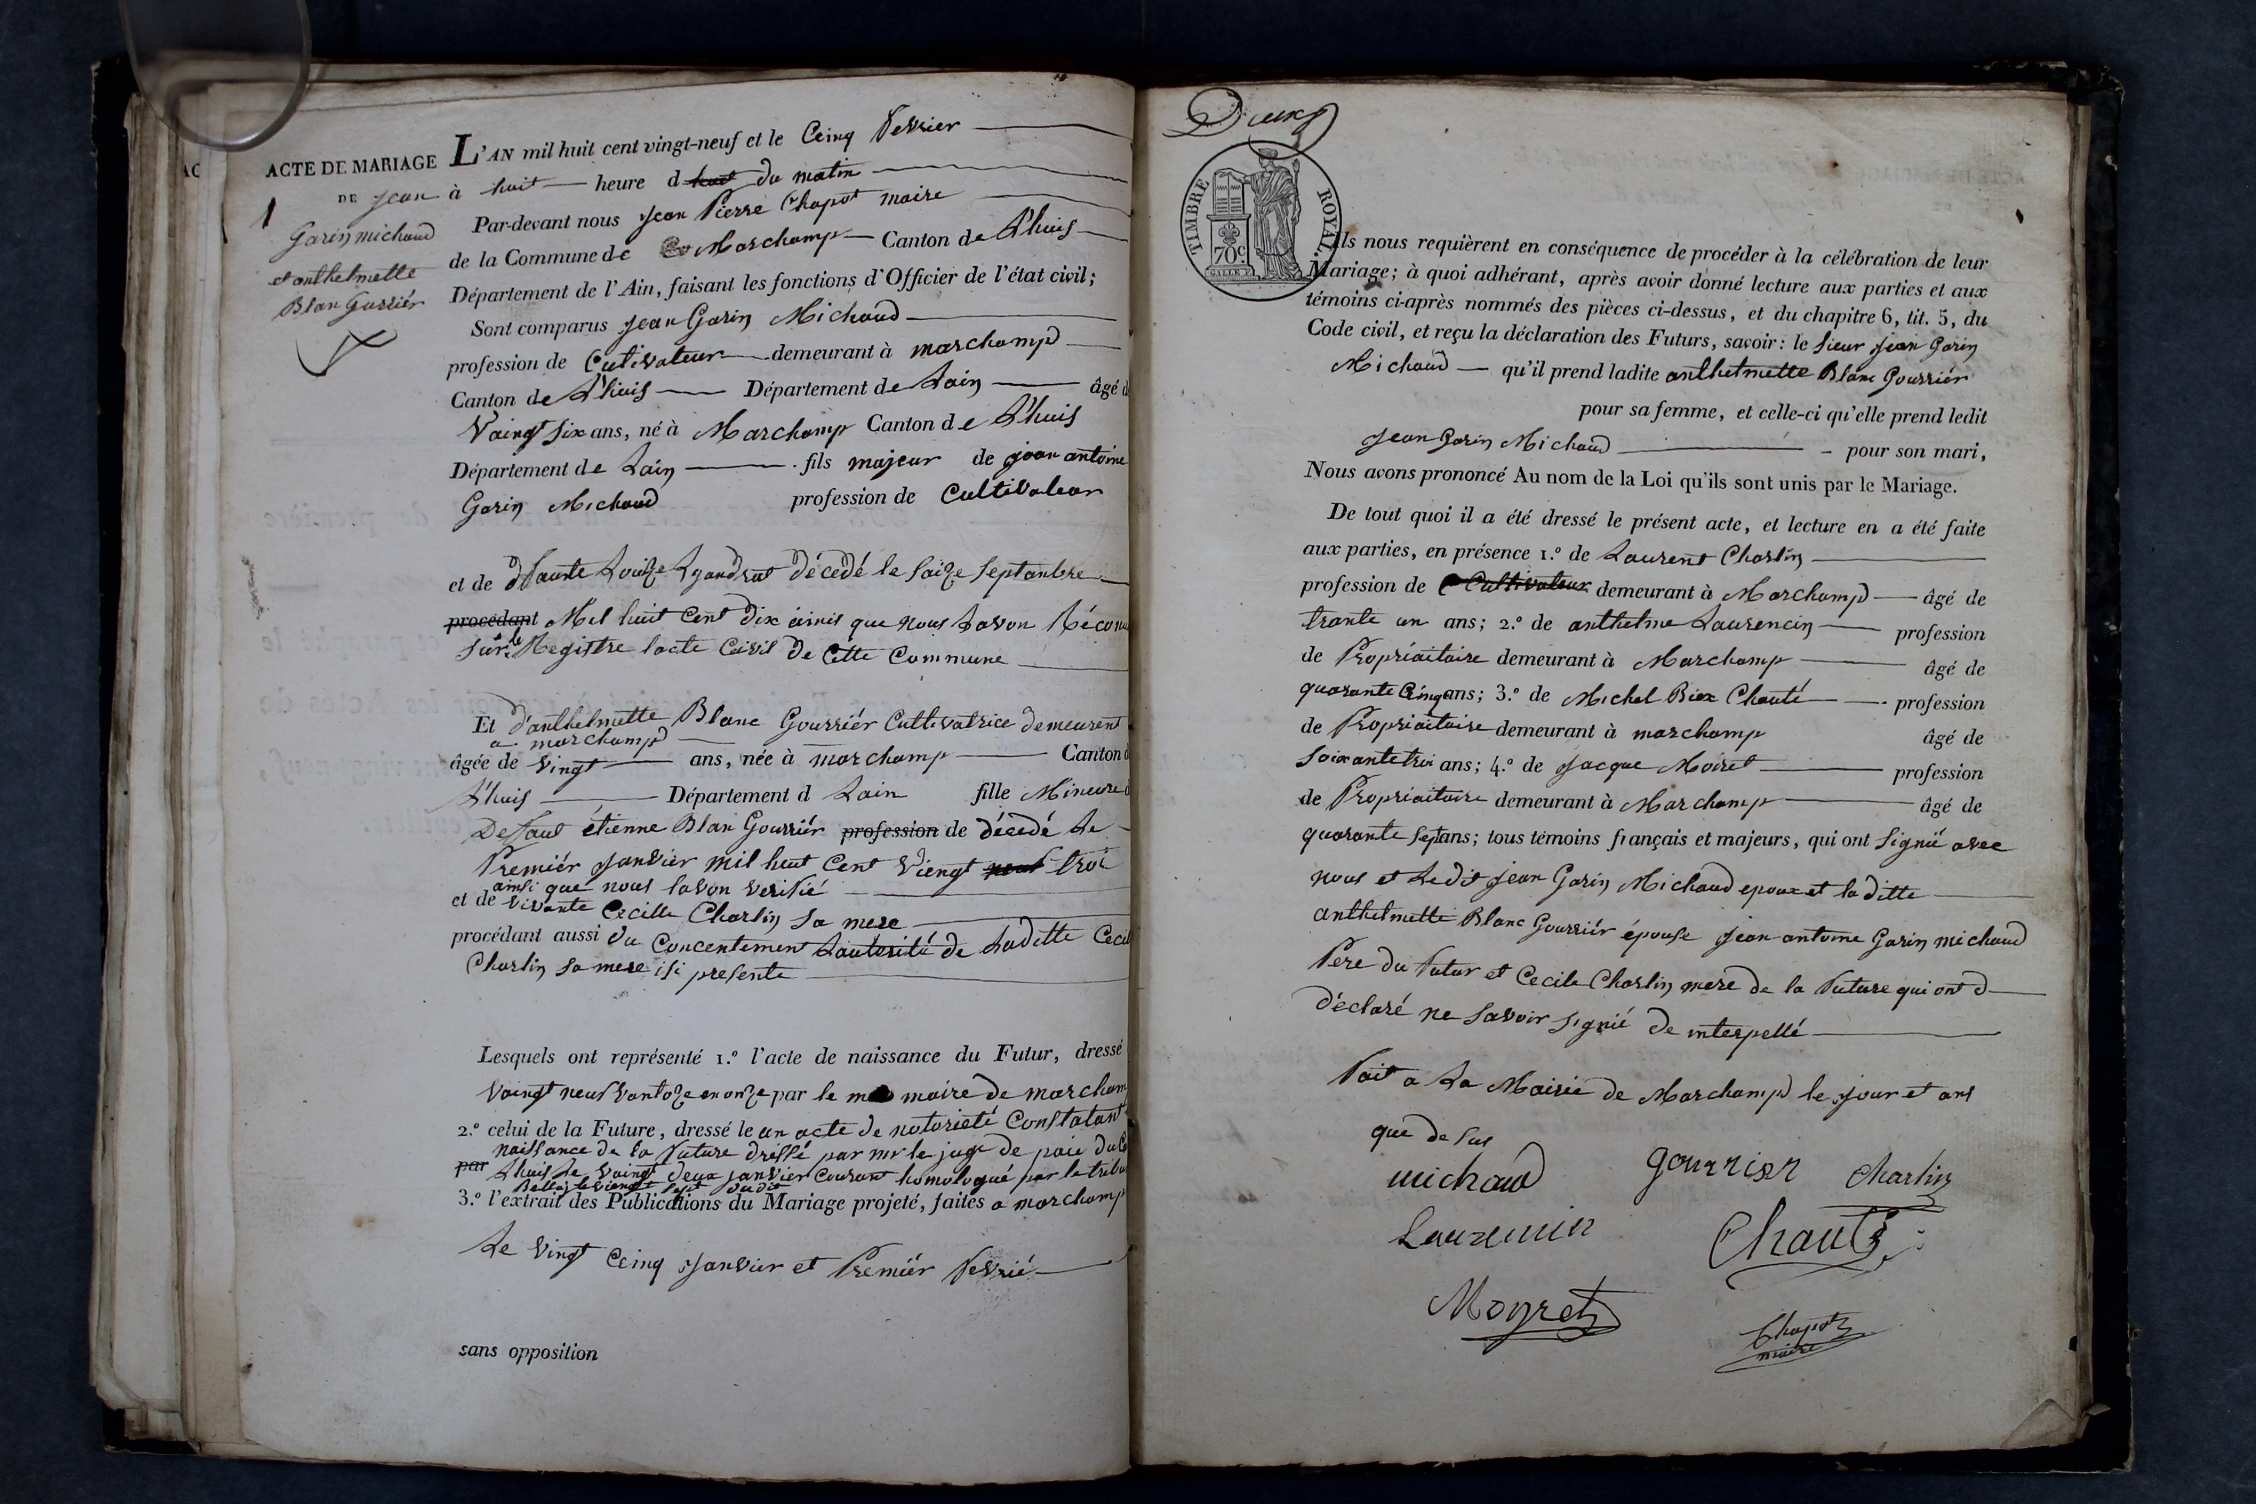 ACTE DE MARIAGE
DE Jean
1
Garin michaud
et anthelmette
Blan Gurriér
L'AN mil huit cent vingt-neuf et le Ceinq Fevrier
à huit heure d huit du matin
Par-devant nous Jean Pierre Chapot maire
de la Commune de Marchamp Canton de L'huis
Département de l'Ain, faisant les fonctions d'Officier de l'état civil;
Sont comparus Jean Garin Michaud
profession de Cultivateur demeurant à marchamp
Canton de L'huis Département de Lain âgé d
Vaingt six ans, né à Marchamp Canton de L'huis
Département de Lain fils majeur de jean antoine
Garin Michaud profession de Cultivateur
et de défaunte Louize décédé le saize septanbre
procédant Mil huit Cent dix ainsi que nous Lavon Réconu
sur le Registre lacte Caivil de Cette Commune
Et d'anthelmette Blanc Gourriér Cultivatrice demeurent
a marchamp
âgée de vingt ans, née à marchamp Canton d
L'huis Département d Lain fille Mineure d
Defaut étienne Blan Gourriér profession de décédé Le
Premiér Janvier mil huit Cent Viengt neuf troi
ainsi que nous lavon verifié
et de vivante Cecille Charlin sa mere
procédant aussi du Concentement Lautorité de Laditte Cecil
Charlin sa mere isi presente
Lesquels ont représenté 1.º l'acte de naissance du Futur, dressé
Vaingt neuf Vantoze an onze par le maire de marcham
2.º celui de la Future, dressé le un acte de notorieté Constatant
naissance de la Future dréssé par mr le juge de paie du
par L'huis le Vaingt deux janvier Courant homologué par le tribu
Belley le Viengt sept dudit
3.º l'extrait des Publications du Mariage projeté, faites a marchamp
Le Vingt Ceinq Janvier et Premiér Fevrié
sans opposition
Deux
TIMBRE ROYAL.
70c
Ils nous requièrent en conséquence de procéder à la célébration de leur
Mariage; à quoi adhérant, après avoir donné lecture aux parties et aux
témoins ci-après nommés des pièces ci-dessus, et du chapitre 6, tit. 5, du
Code civil, et reçu la déclaration des Futurs, savoir: le sieur Jean Garin
Michaud qu'il prend ladite anthelmette Blanc Gourriér
pour sa femme, et celle-ci qu'elle prend ledit
Jean Garin Michaud pour son mari,
Nous avons prononcé Au nom de la Loi qu'ils sont unis par le Mariage.
De tout quoi il a été dressé le présent acte, et lecture en a été faite
aux parties, en présence 1.º de Laurent Charlin
profession de Cultivateur demeurant à Marchamp âgé de
trante un ans; 2.º de anthelme Laurencin profession
de Propriaitaire demeurant à Marchamp âgé de
quarante Cinq ans; 3.º de Michel Biex Chanté profession
de Propriaitaire demeurant à marchamp âgé de
soixante troi ans; 4.º de Jacque Moiret profession
de Propriaitaire demeurant à Marchamp âgé de
quarante sept ans; tous témoins français et majeurs, qui ont signié avec
nous et Ledit Jean Garin Michaud epoux et la ditte
anthelmette Blanc Gourriér épouse Jean antoine Garin michaud
Pere du Futur et Cecile Charlin mere de la Future qui ont d
déclaré ne savoir signié de interpellé
Fait a La Mairie de Marchamp le Jour et ans
que de sus
michaud gourrier Charlin
Laurencin Chanté
Moyret
Chapot
maire